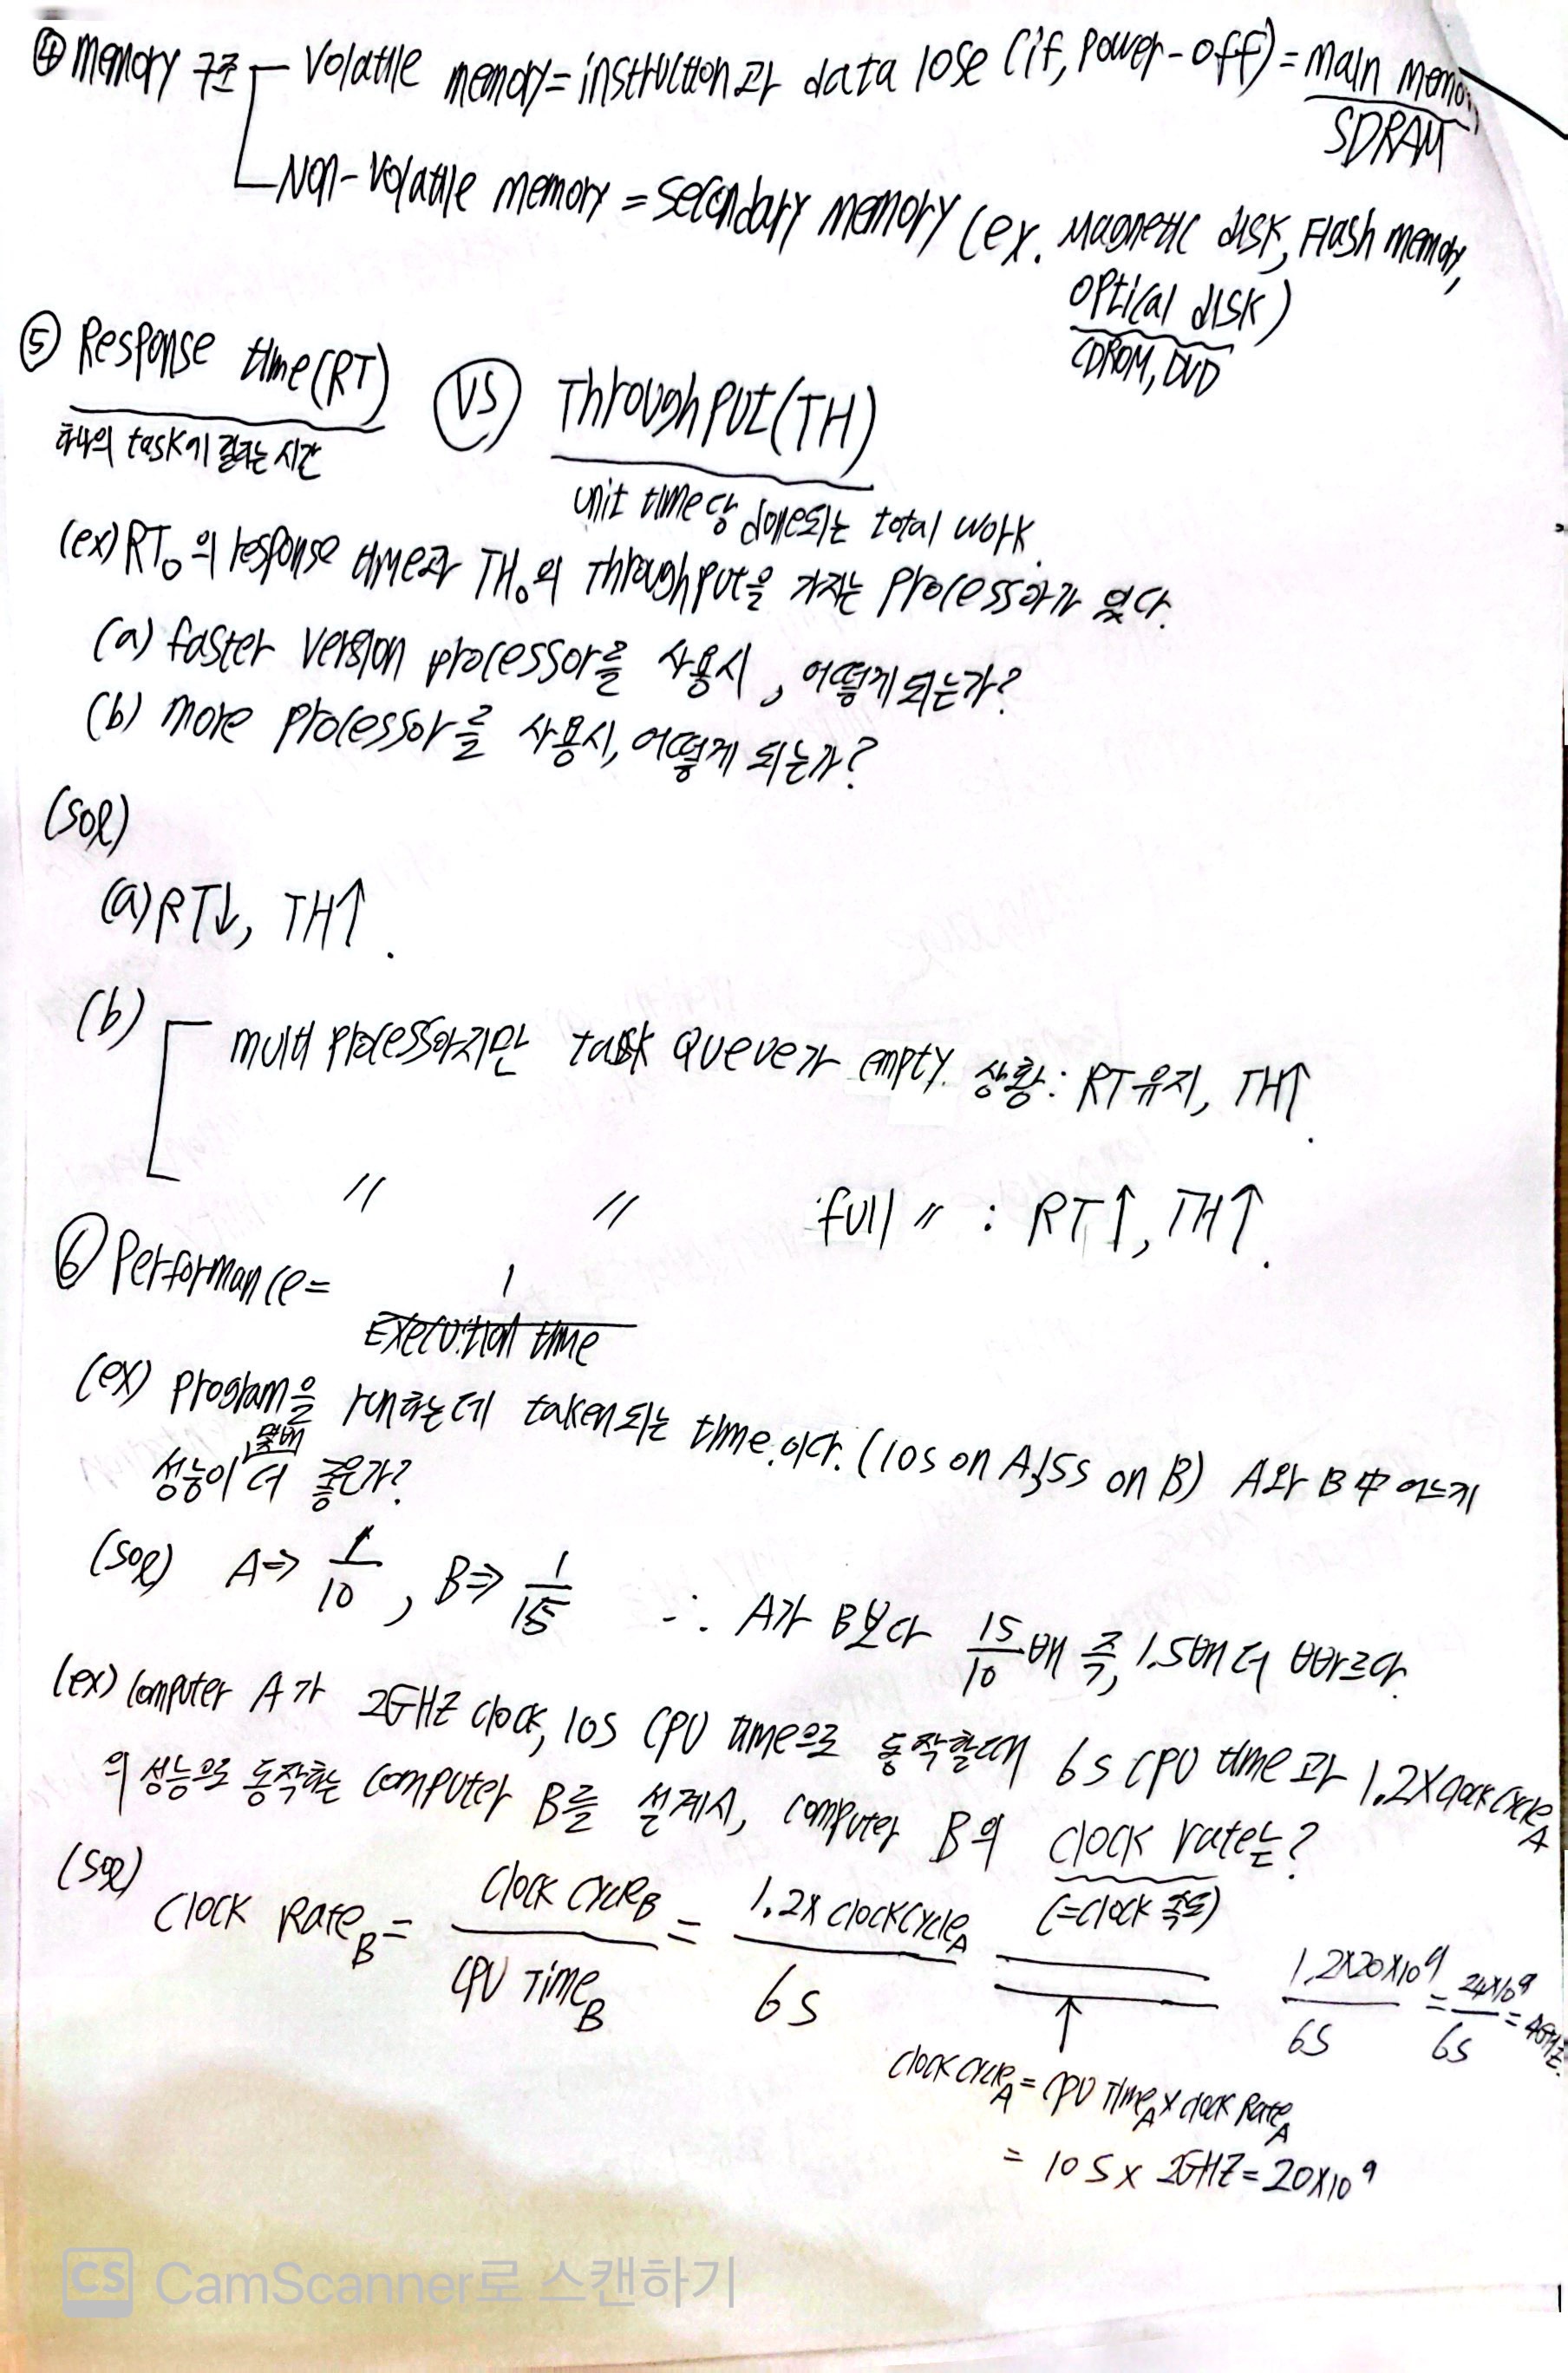 ④ memory 구조 Volatile memory = instruction과 data lose (if, power-off) = main memo
SDRAM
Non-Volatile memory = secondary memory (ex. Magnetic disk, Flash memory,
optical disk)
CDROM, DVD
⑤ Response time(RT) VS Throughput(TH)
하나의 task에 걸리는 시간
unit time당 done되는 total work.
(ex) RT₀의 response time과 TH₀의 Throughput을 가지는 processor가 있다.
(a) faster version processor를 사용시, 어떻게 되는가?
(b) more processor를 사용시, 어떻게 되는가?
(sol)
(a) RT↓, TH↑.
(b) multi processor지만 task queue가 empty. 상황: RT유지, TH↑.
〃 〃 full 〃 : RT↑, TH↑.
⑥ Performance = 1 / Execution time
(ex) program을 run하는데 taken되는 time이다. (10s on A, 15s on B) A와 B 中 어느게
성능이 몇배 더 좋은가?
(sol) A ⇒ 1/10, B ⇒ 1/15 ∴ A가 B보다 15/10배 즉, 1.5배 더 빠르다.
(ex) computer A가 2GHz clock, 10s CPU time으로 동작할때 6s CPU time과 1.2X clock cycle A
의 성능으로 동작하는 computer B를 설계시, computer B의 clock rate는?
(=clock 속도)
(sol)
Clock Rate B = Clock Cycle B / CPU Time B = 1.2X clock cycle A / 6s = 1.2X20X10⁹ / 6s = 24X10⁹ / 6s = 4GHz.
↑
clock cycle A = CPU Time A X clock Rate A
= 10s X 2GHz = 20X10⁹
CS CamScanner로 스캔하기